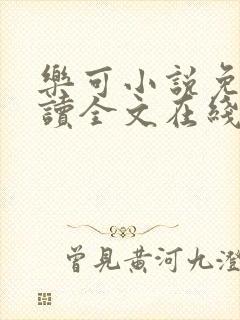 樂可小說免
讀全文在綫
曾見黄河九澄